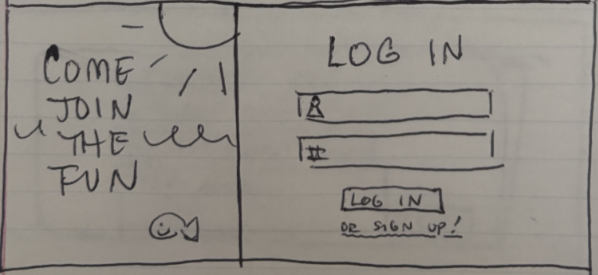 COME
JOIN
THE
FUN
LOG IN
#
LOG IN
OR SIGN UP!